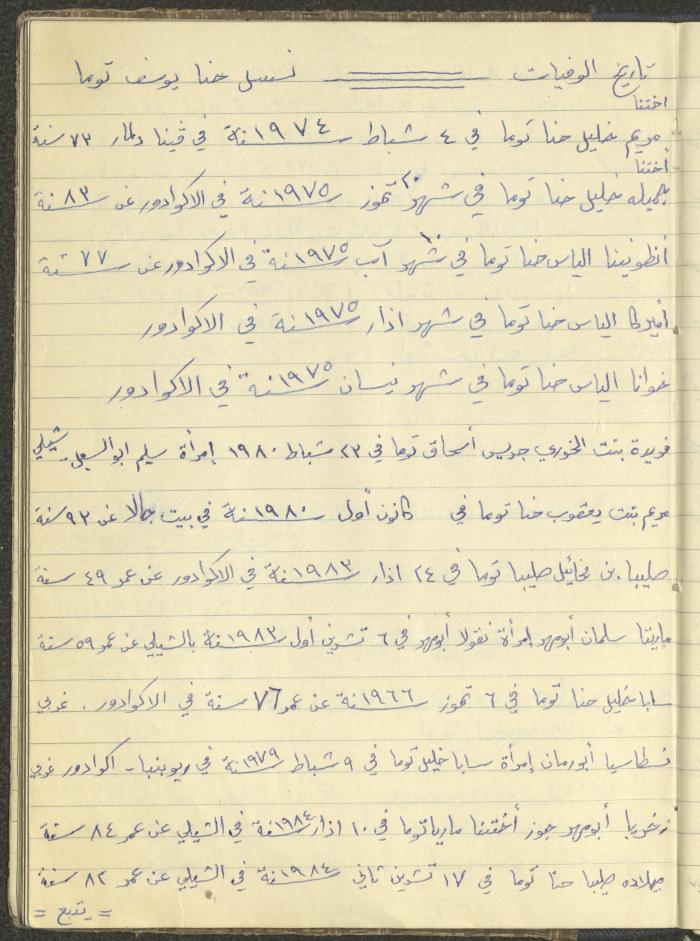 تاريخ الوفيات نسل حنا يوسف توما
اختنا
مريم خليل حنا توما في ٤ شباط سنة ١٩٧٤ في ڤينا دلمار ٧٣ سنة
أختنا
جميله خليل حنا توما في شهر ٢٠ تموز سنة ١٩٧٥ في الاكوادور عن ٨٣ سنة
أنطونينا الياس حنا توما في شهر ١٠ آب سنة ١٩٧٥ في الاكوادور عن ٧٧ سنة
أميركا الياس حنا توما في شهر اذار سنة ١٩٧٥ في الاكوادور
خوانا الياس حنا توما في شهر نيسان سنة ١٩٧٥ في الاكوادور
فريدة بنت الخوري جريس أسحاق توما في ٢٣ شباط ١٩٨٠ إمرأة سليم ابو السعل - شيلي
مريم بنت يعقوب حنا توما في كانون أول سنة ١٩٨٠ في بيت جالا عن ٩٣ سنة
صليبا بن مخائيل صليبا توما في ٢٤ اذار سنة ١٩٨٣ في الاكوادور عن عمر ٤٩ سنة
ماريتا سلمان أبو مهر إمرأة نقولا أبو مهر في ٦ تشرين أول سنة ١٩٨٣ بالشيلي عن عمر ٥٩ سنة
سابا خليل حنا توما في ٦ تموز سنة ١٩٦٦ عن عمر ٧٦ سنة في الاكوادور . غوبي
نسطاسيا أبو رمان إمرأة سابا خليل توما في ٩ شباط سنة ١٩٧٩ في ريوبنبا - اكوادور غوبي
زخريا أبو مهر جوز أختنا ماريا توما في ١٠ اذار سنة ١٩٨٤ في الشيلي عن عمر ٨٤ سنة
ميلاده صليبا حنا توما في ١٧ تشرين ثاني سنة ١٩٨٤ في الشيلي عن عمر ٨٢ سنة
= يتبع =